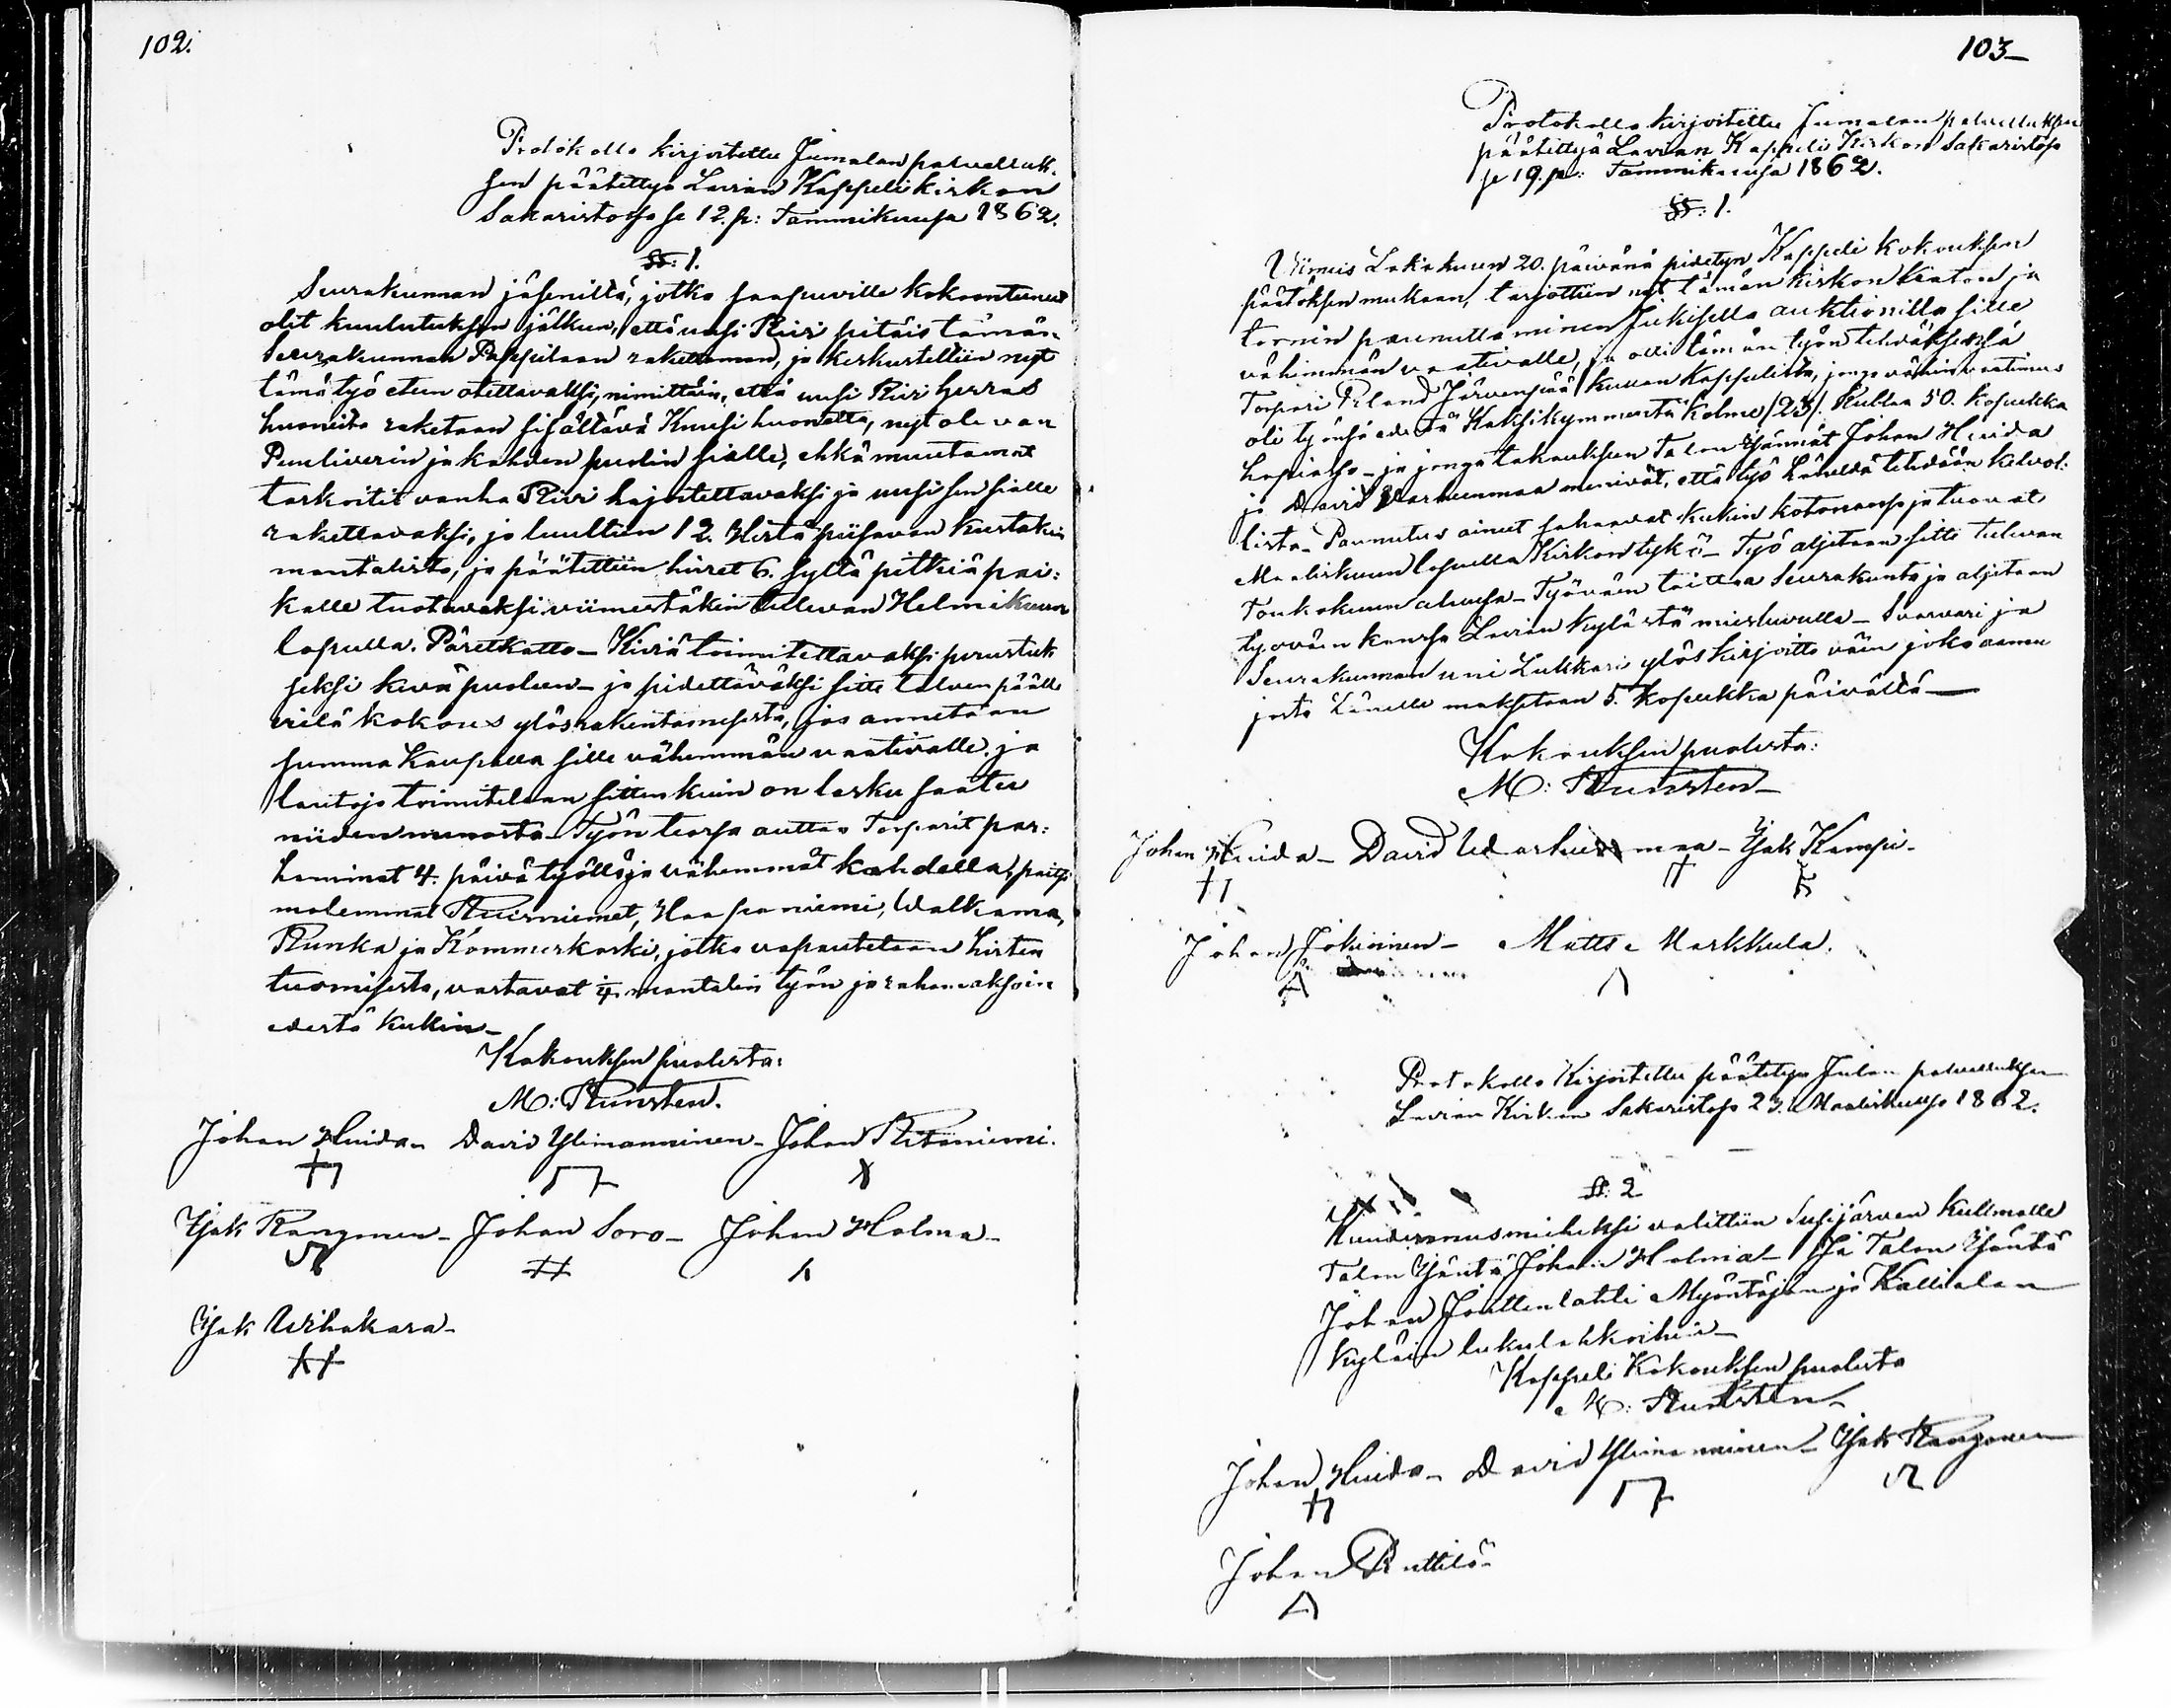 102.
Protokolla kirjoitettu Jumalan palvelluk-
sen päätettyä Lavian Kappeli kirkon
Sakaristossa se 12. p: Tammikuusa 1862.
§§: 1.
Seurakunnan jäseniltä, jotka saapuville kokoontuneet
olit kuulutuksen jälkeen, että uusi Riiri pitäis tämän
Seurakunnan Pappilaan rakettaman, ja keskusteltiin nyt
tämä työ eteen otettavaksi, nimittäin, että uusi Riiri herras
huoneita raketaan sisältävä Kuusi huonetta, nyt olevan
Puuliverin ja kahden puodin sialle, ehkä muutamat
tarkoitit vanha Riiri hajoitettavaksi ja uusi sen sialle
rakettavaksi, ja luultiin 12. Hirtä piisavan kustakin
mantalista, ja päätettiin hirret 6. syltä pitkiä pai:
kalle tuotavaksi viimestäkin tullevan Helmikuun
lopulla. Päretkatto – Kiviä toimitettavaksi perustuk
seksi kevä puoleen – ja pidettäväksi sitte talven päälle
vielä kokous ylösrakentamisesta, jos annetaan
summa kaupalla sille vähemmän vaativalle, ja
lautoja toimitetaan sitten kuin on lasku saatu
niiden – Työn teossa auttaa Torparit par:
haminat 4. päivätyöllä ja vähemmät kahdella, paitsi
molemmat Ruisniemet, Haapaniemi, Walkama,
Runka ja Kommerkoski, jotka vapautetaan hirten
tuomisesta, vastavat ¼ mantalin työn ja rahamaksoin
edestä kukin –
Kokouksen puolesta:
M: Runsten.
Johan Huida – David Ylinanninen – Johan Ritaniemi.
Isak Rangonen – Johan Soro – Johan Holma –
Isak Uihakara –
103 –
Protokolla kirjoitettu Jumalan palvelluksen
päätettyä Lavian Kappeli Kirkon Sakaristossa
se 19. p: Tammikuusa 1862.
§§: 1.
Viimeis Lokakuun 20. päivänä pidetyn Kappeli kokouksen
päätöksen mukaan, tarjottiin nyt tämän kirkon katon ja
tornin paunuttaminen Julkisella auktionilla sille
vähimmän vaativalle, ja otti tämän työn tehdäksensä
Torpari Erland Järvenpää Kullaan Kappelista, jonga vähin vaatimus
oli työnsä edestä Kaksikymmentä kolme /23/. Rublaa 50. kopeekka
hopiassa – ja jonga takauksen Talon Isännät Johan Huida
ja David Warhuunmaa menivät, että työ häneldä tehdään kelvol:
lista – Paunutus aineet sahaavat kukin kotonansa ja tuovat
Maaliskuun lopulla Kirkon tykö – Työ aljetaan sitte tulevan
Toukokuun alussa – Työväen taittaa Seurakunta ja aljetaan
työväen kanssa Lavian kylästä miesluvulla – Svarvari ja
Seurakunnan uni Lukkari ylöskirjoitta väen joka aamu
josta hänelle maksetaan 5. kopeekka päivältä –
Kokouksen puolesta:
M: Runsten –
Johan Huida – David Warhuunmaa – Isak Kampi –
Johan Jokininen – Matts Markkula.
Protokolla kirjoitettu päätettyä Julan palvelluksen
Lavian Kirkon Sakaristossa 23. Maaliskuussa 1862.
§§: 2
Kuudennusmieheksi valittiin Susijärven kullmalle
Talon Isäntä Johan Holma – Ja Talon Isäntä
Johan Jouttenlahti Myöntäjän ja Kallialan
kyläin lukulahkoihin –
Kappeli Kokouksen puolesta
M: Runsten –
Johan Huida – David Ylinanninen – Isak Rangonen
Johan Ruttilä –